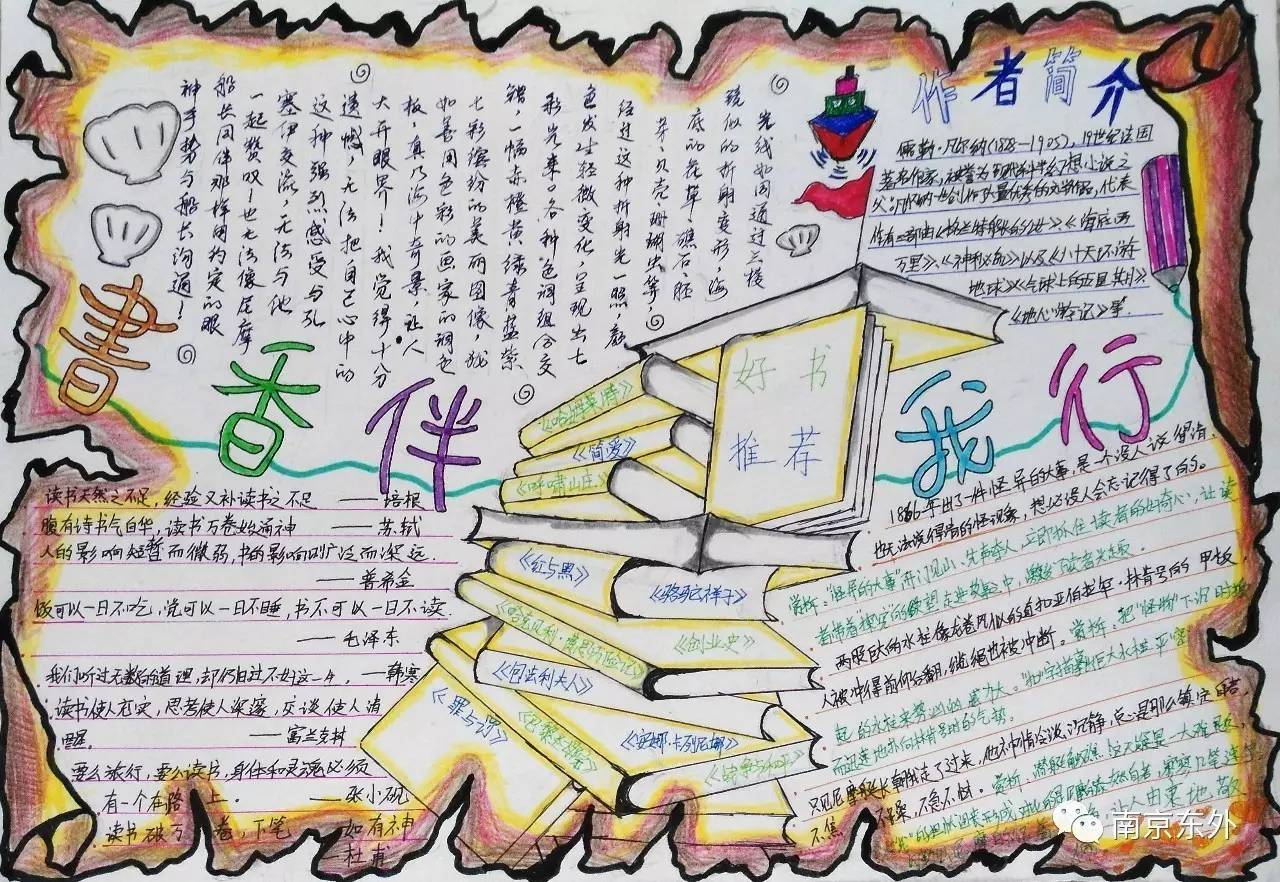 書香伴我行
作者简介
儒勒·凡尔纳(1828—1905)，19世纪法国
著名作家，被誉为"现代科学幻想小说之
父"，凡尔纳一生创作了大量优秀的文学作品，代表
作有三部曲《格兰特船长的儿女》、《海底两
万里》、《神秘岛》以及《八十天环游
地球》《气球上的五星期》
《地心游记》等.
光线如同通过三棱
镜似的折射变形，海
底的花草、礁石、胚
芽、贝壳、珊瑚虫等，
经过这种折射光一照，颜
色发生轻微变化，呈现出七
彩光来。各种色调组合交
错，一幅赤橙黄绿青蓝紫
七彩缤纷的美丽图像，就
如善用色彩的画家的调色
板，真乃海中奇景，让人
大开眼界！我觉得十分
遗憾，无法把自己心中的
这种强烈感受与孔
塞伊交流，无法与他
一起赞叹！也无法像尼摩
船长同伴那样用约定的眼
神手势与船长沟通！
好书
推荐
《哈姆莱特》
《简爱》
《呼啸山庄》
《红与黑》
《骆驼祥子》
《哈克贝利·费恩历险记》
《创业史》
《包法利夫人》
《罪与罚》
《安娜·卡列尼娜》
《战争与和平》
读书补天然之不足，经验又补读书之不足 ——培根
腹有诗书气自华，读书万卷始通神 ——苏轼
人的影响短暂而微弱，书的影响则广泛而深远.
——普希金
饭可以一日不吃，觉可以一日不睡，书不可以一日不读.
——毛泽东
我们听过无数的道理，却仍旧过不好这一生. ——韩寒
读书使人充实，思考使人深邃，交谈使人清
醒. ——富兰克林
要么旅行，要么读书，身体和灵魂必须
有一个在路上. ——张小砚
读书破万卷，下笔如有神
——杜甫
1866年出了一件怪异的大事，是一个没人说得清，
也无法说得清的怪现象，想必没人会忘记得了的。
赏析："怪异的大事"开门见山、先声夺人，立即抓住读者的好奇心，让读
者带着探究的欲望走进故事中，激发了读者兴趣.
两股巨大的水柱像龙卷风似的直扣亚伯拉罕·林肯号的甲板
人被冲得前仰后翻，缆绳也被冲断。赏析：把"怪物"下沉时掀
起的水柱来势汹汹
只见尼摩船长朝我走了过来，他神情冷淡、沉静，总是那么镇定自若，
不焦不躁，不急不忙。
南京东外